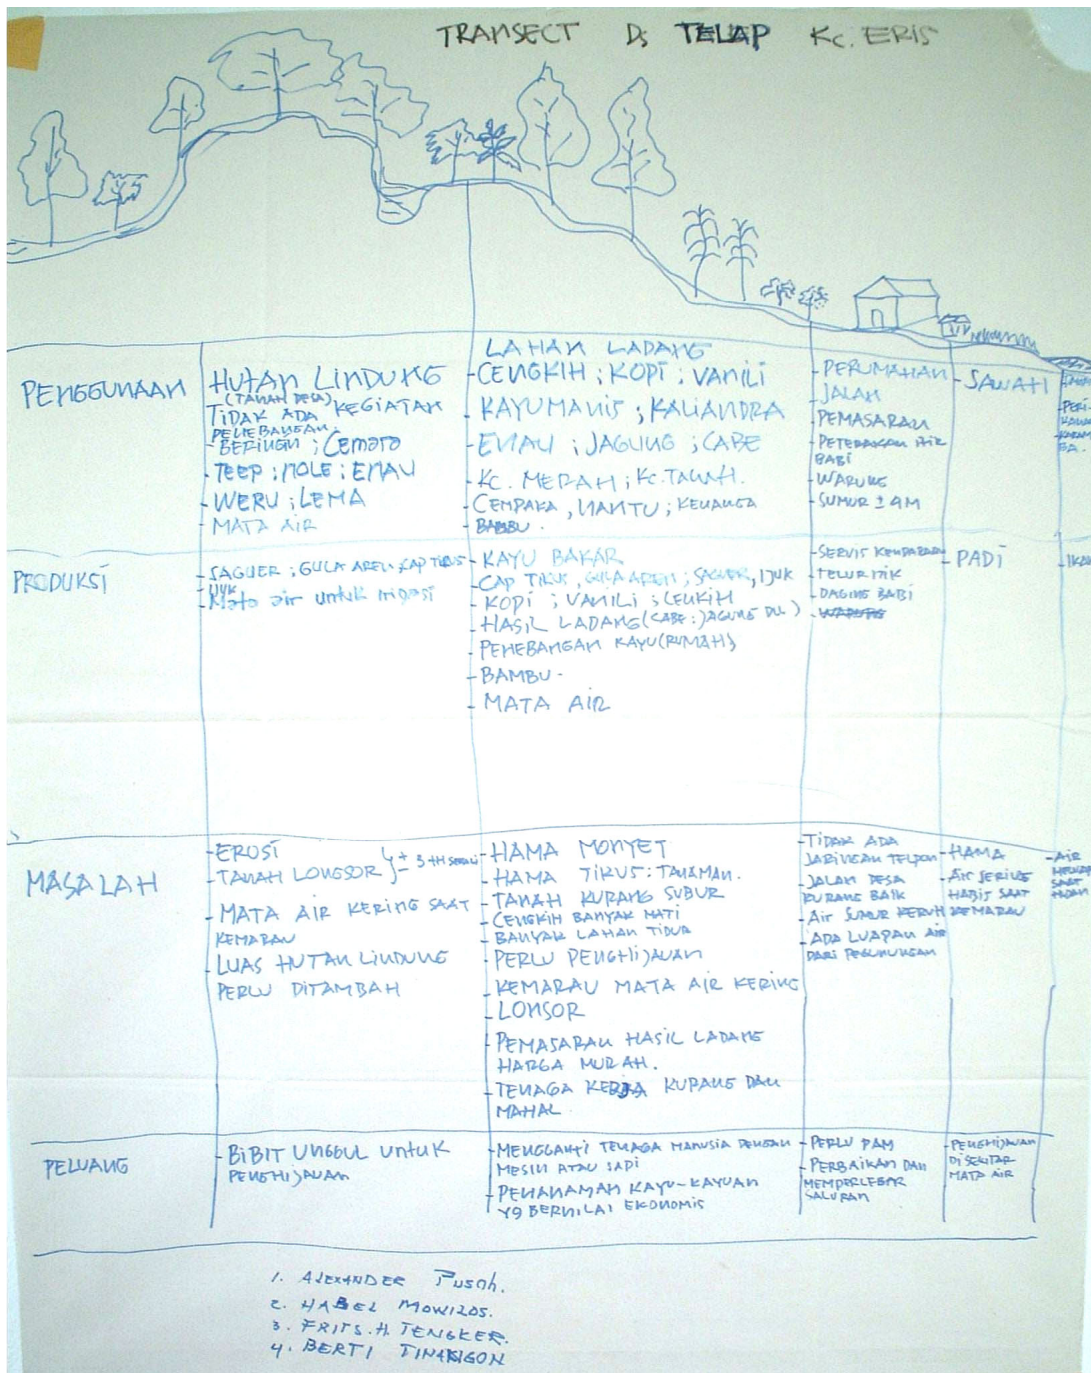 TRANSECT Ds TELAP Kc. ERIS
PENGGUNAAN
HUTAN LINDUNG
(TANAH DESA)
TIDAK ADA KEGIATAN
PENEBANGAN.
- BERINGIN ; Cemara
- TEEP ; NOLE ; ENAU
- WERU ; LEMA
- MATA AIR
LAHAN LADANG
- CENGKIH ; KOPI ; VANILI
- KAYU MANIS ; KALIANDRA
- ENAU ; JAGUNG ; CABE
- Kc. MERAH ; Kc. TANAH.
- CEMPAKA , NANTU ; KENANGA
- BAMBU .
- PERUMAHAN
- JALAN
- PEMASARAN
- PETERNAKAN ITIK
BABI
- WARUNG
- SUMUR ± 4M
- SAWAH
PRODUKSI
- SAGUER ; GULA AREN ; CAP TIKUS
IJUK
- Mata air untuk irigasi
- KAYU BAKAR
- CAP TIKUS , GULA AREN ; SAGUER, IJUK
- KOPI ; VANILI ; CENKIH
- HASIL LADANG (CABE ; JAGUNG DLL)
- PENEBANGAN KAYU (RUMAH)
- BAMBU -
- MATA AIR
- SERVIS KENDARAAN
- TELUR ITIK
- DAGING BABI
- WARUNG
- PADI
- IKAN
MASALAH
- EROSI
- TANAH LONGSOR } ± 3 TH SEKALI
- MATA AIR KERING SAAT
KEMARAU
- LUAS HUTAN LINDUNG
PERLU DITAMBAH
- HAMA MONYET
- HAMA TIKUS : TANAMAN.
- TANAH KURANG SUBUR
- CENGKIH BANYAK MATI
- BANYAK LAHAN TIDUR
- PERLU PENGHIJAUAN
- KEMARAU MATA AIR KERING
- LONSOR
- PEMASARAN HASIL LADANG
HARGA MURAH.
- TENAGA KERJA KURANG DAN
MAHAL
- TIDAK ADA
JARINGAN TELPON
- JALAN DESA
KURANG BAIK
- Air SUMUR KERUH
- ADA LUAPAN AIR
DARI PEGUNUNGAN
- HAMA
- Air SERING
HABIS SAAT
KEMARAU
- AIR
SAAT
PELUANG
- BIBIT UNGGUL UNTUK
PENGHIJAUAN
- MENGGANTI TENAGA MANUSIA DENGAN
MESIN ATAU SAPI
- PENANAMAN KAYU-KAYUAN
Yg BERNILAI EKONOMIS
- PERLU PAM
- PERBAIKAN DAN
MEMPERLEBAR
SALURAN
- PENGHIJAUAN
DI SEKITAR
MATA AIR
1. ALEXANDER Pusoh.
2. HABEL MOWILOS.
3. FRITS. H. TENGKER.
4. BERTI TINANGON